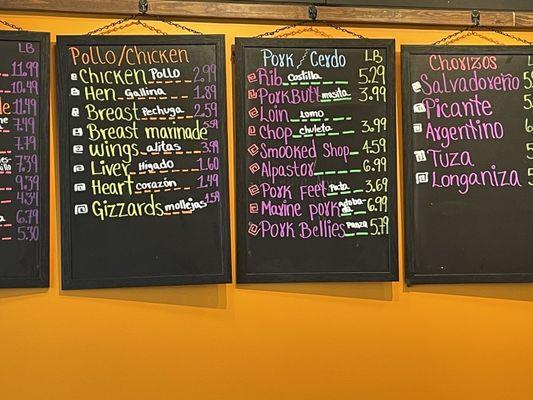 LB
11.99
10.49
11.99
4.19
7.14
7.79
7.39
9.39
4.34
6.79
5.30
Pollo/Chicken
Chicken Pollo 2.99
Hen Gallina 1.89
Breast Pechuga 2.59
Breast marinade 3.59
wings alitas 3.99
Liver Higado 1.60
Heart corazón 1.49
Gizzards mollejas 1.59
Pork/Cerdo LB
Rib Costilla 5.29
Pork Butt masita 3.99
Loin Lomo
Chop chuleta 3.99
Smooked Shop 4.59
Alpastor 6.99
Pork Feet Pata 3.69
Marine pork adoba-do 6.99
Pork Bellies Panza 5.79
Chorizos LB
Salvadoreño
Picante
Argentino
Tuza
Longaniza